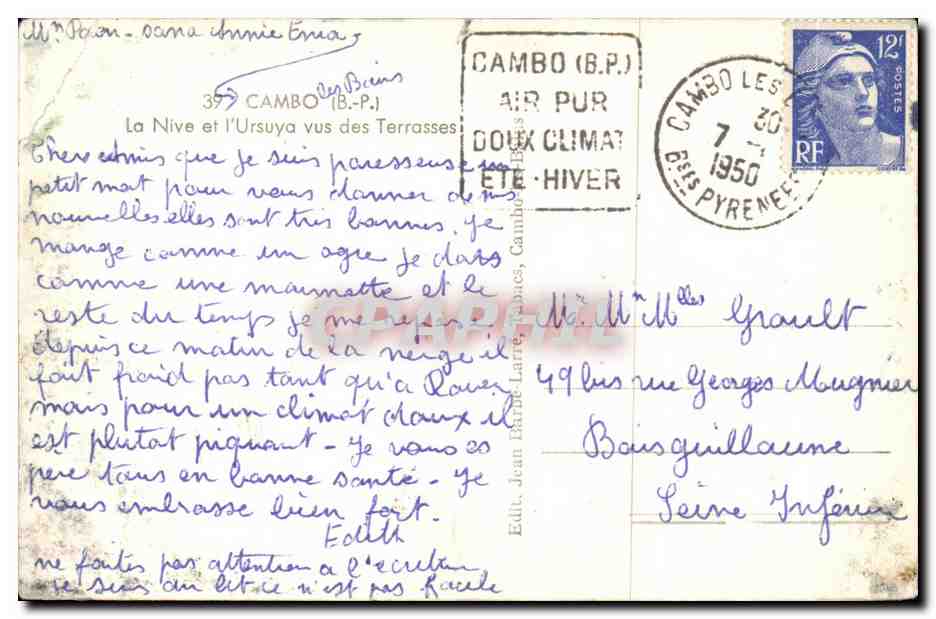 sana Annie Enia
39 CAMBO les Bains (B.-P.)
La Nive et l'Ursuya vus des Terrasses
Chers amis que je suis paresseuse un
petit mot pour vous donner de mes
nouvelles elles sont très bonnes. Je
mange comme un ogre je dors
comme une marmotte et le
reste du temps je me repose
depuis ce matin de la neige il
fait froid pas tant qu'a Rouen
mais pour un climat doux il
est plutot piquant - Je vous es
pere tous en bonne santé - Je
vous embrasse bien fort.
Edith
ne faites pas attention a l'ecriture
je suis au lit ce n'est pas facile
CAMBO (B.P.)
AIR PUR
DOUX CLIMAT
ÉTÉ · HIVER
CAMBO LES
30
7
1950
Bses PYRENEES
12f
POSTES
RF
Edit. Jean Barbé-Larre, Tabacs, Cambo-les-Bains
CPAPHIL
Mr Mm Melles Grault
49 bis rue Georges Mugnier
Boisguillaume
Seine Inférieure